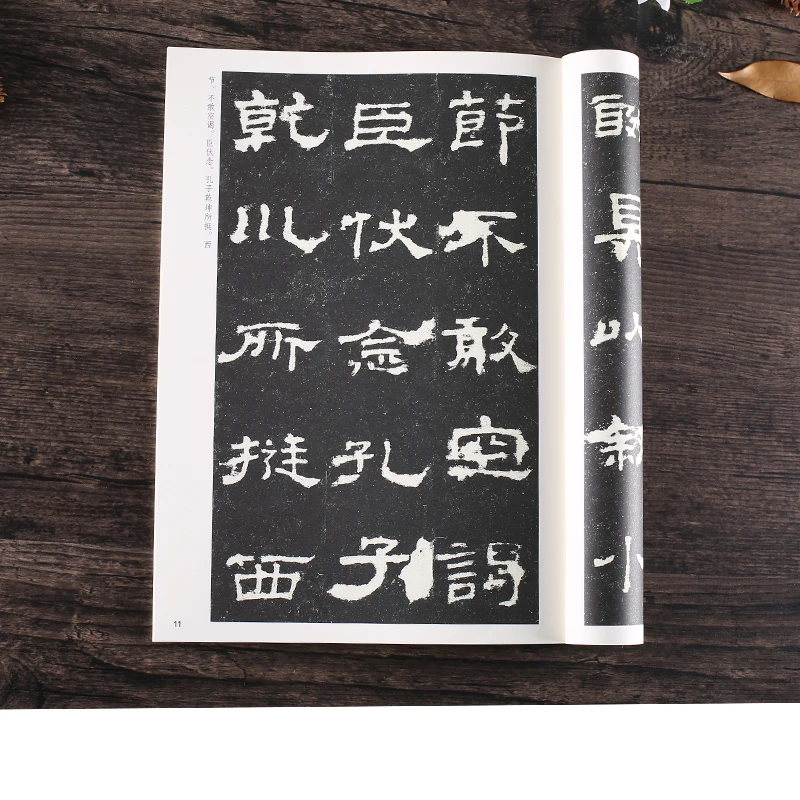 具以敘小
節不敢空謁
臣伏念孔子
乾巛所挺西
节，不敢空谒。臣伏念，孔子乾坤所挺。西
11